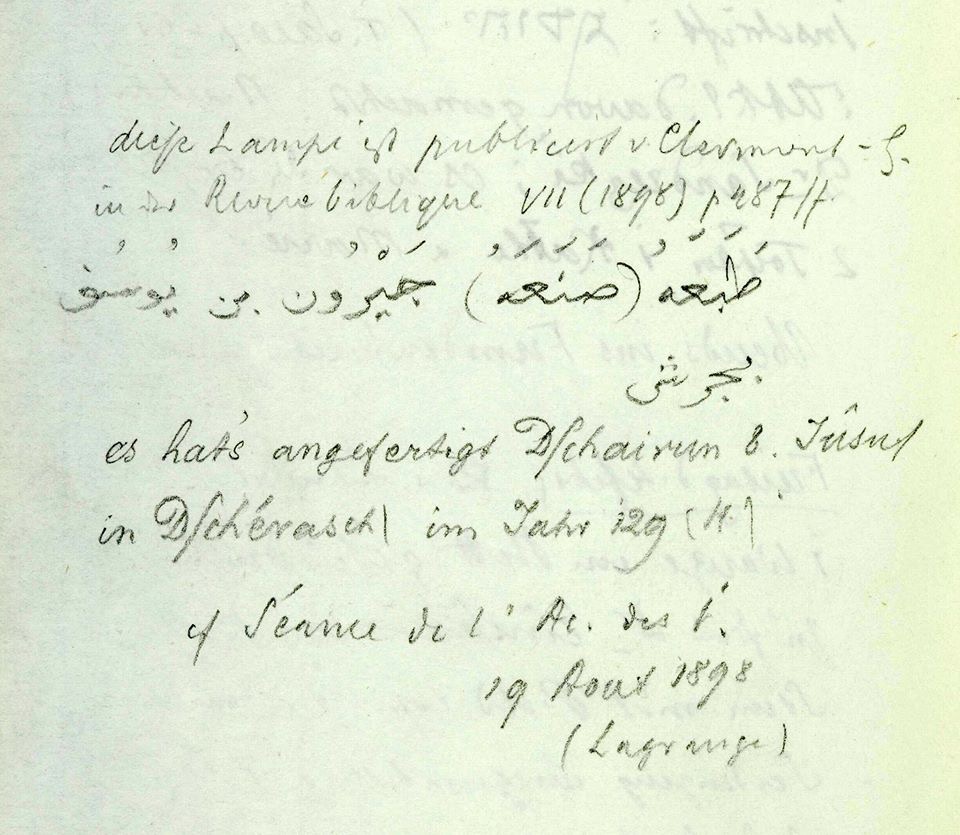 diese Lampe ist publiciert v Clermont-G.
in der Revue biblique VII (1898) p 487 ff.
طبعه (صنعه) جَيْرُون بن يوسف
بجرش
es hat's angefertigt Dschairun b. Jûsuf
in Dschérasch im Jahr 129 (H.)
cf Séance de l' Ac. des I.
19 Aout 1898
(Lagrange)